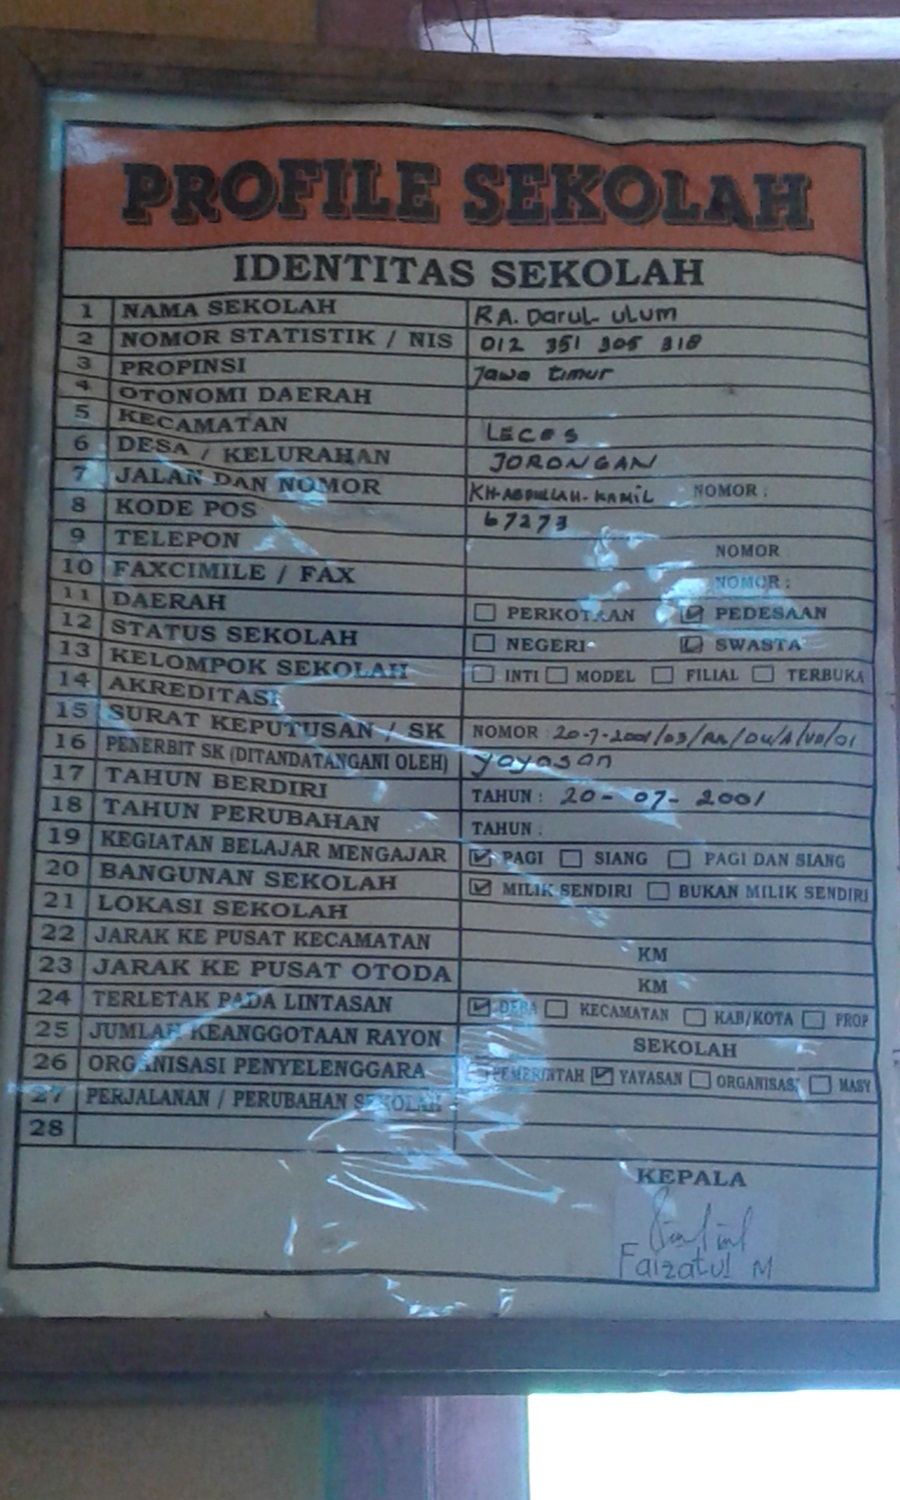 PROFILE SEKOLAH
IDENTITAS SEKOLAH
1 NAMA SEKOLAH RA. Darul ulum
2 NOMOR STATISTIK / NIS 012 351 305 318
3 PROPINSI Jawa timur
4 OTONOMI DAERAH
5 KECAMATAN LECES
6 DESA / KELURAHAN JORONGAN
7 JALAN DAN NOMOR KH-ABDULLAH-KAMIL NOMOR :
8 KODE POS 67273
9 TELEPON NOMOR
10 FAXCIMILE / FAX NOMOR :
11 DAERAH PERKOTAAN PEDESAAN
12 STATUS SEKOLAH NEGERI SWASTA
13 KELOMPOK SEKOLAH INTI MODEL FILIAL TERBUKA
14 AKREDITASI
15 SURAT KEPUTUSAN / SK NOMOR : 20-7-2001/03/RA/DU/A/VII/01
16 PENERBIT SK (DITANDATANGANI OLEH) yayasan
17 TAHUN BERDIRI TAHUN : 20-07-2001
18 TAHUN PERUBAHAN TAHUN :
19 KEGIATAN BELAJAR MENGAJAR PAGI SIANG PAGI DAN SIANG
20 BANGUNAN SEKOLAH MILIK SENDIRI BUKAN MILIK SENDIRI
21 LOKASI SEKOLAH
22 JARAK KE PUSAT KECAMATAN KM
23 JARAK KE PUSAT OTODA KM
24 TERLETAK PADA LINTASAN DESA KECAMATAN KAB/KOTA PROP
25 JUMLAH KEANGGOTAAN RAYON SEKOLAH
26 ORGANISASI PENYELENGGARA PEMERINTAH YAYASAN ORGANISASI MASY
27 PERJALANAN / PERUBAHAN SEKOLAH
28
KEPALA
Faizatul M